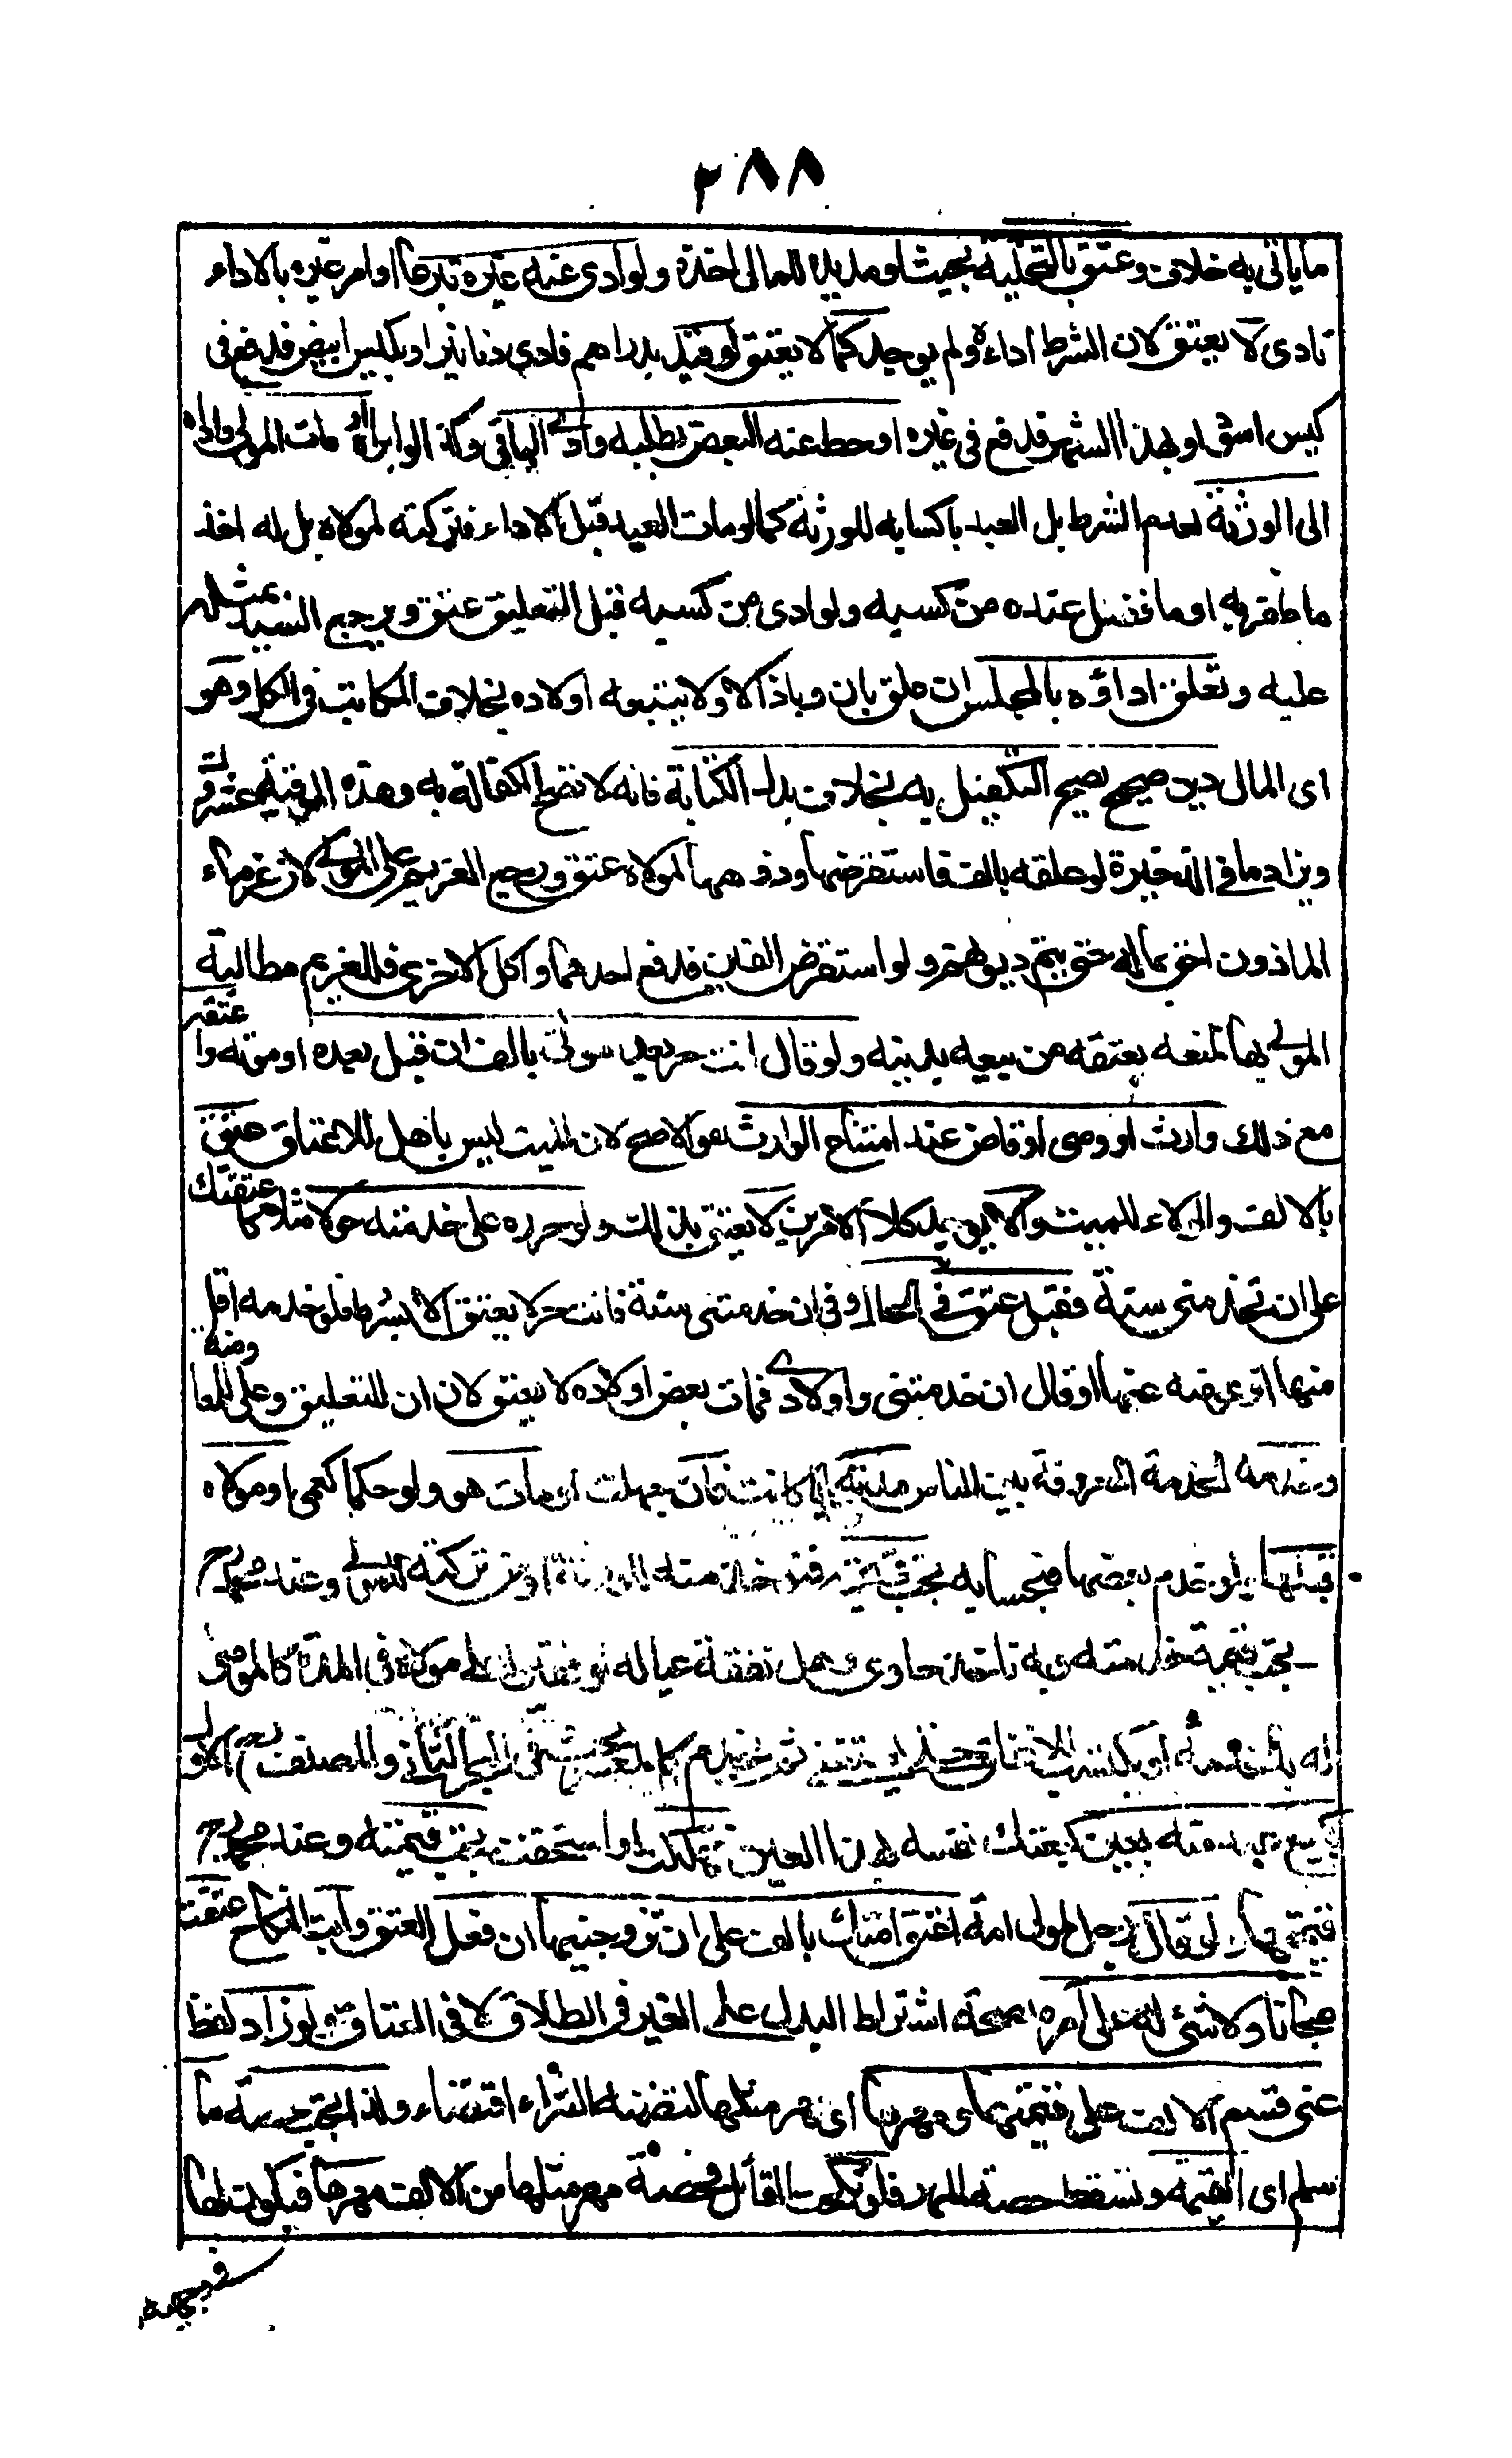 ٢٨٨
ما يأتي به خلاف وعتق بالتخلية بحيث لو مد يده للمال اخذه ولو ادى عنه غيره تبرعا او امر غيره بالاداء
فادى لا يعتق لان الشرط اداءه ولم يوجد كما لا يعتق لو قيد بدراهم فادى دنانير او بكيس ابيض فدفع في
كيس اسود او بهذا الشهر فدفع في غيره او حط عنه البعض بطلبه وادى الباقي وكذا لو ابراه او مات المولى واداه
الى الورثة لعدم الشرط بل العبد باكسابه للورثة كما لو مات العبد قبل الاداء فتركته لمولاه بل له اخذ
ما ظفر به او ما فضل عنده من كسبه ولو ادى من كسبه قبل التعليق عتق ويرجع السيد بمثله
عليه وتعلق اداؤه بالمجلس ان علق بان وباذا لا ولا يتبعه اولاده بخلاف المكاتب في الكل وهو
اى المال دين صحيح يصح التكفيل به بخلاف بدل الكتابة فانه لا تصح الكفالة به وهذه الموفية عشرون
ويزاد ما في الذخيرة لو علقه بالف فاستقرضها ودفعها لمولاه عتق ويرجع الغريم على المولى لان غرماء
الماذون احق بماله حتى يتم ديونهم ولو استقرض الفين فدفع احدهما واكل الاخرى فللغريم مطالبة
المولى بها لمنعه بعتقه من بيعه بدينه ولو قال انت حر بعد موتي بالف ان قبل بعده او موته وا عتقه
مع ذلك وارث او وصى او قاض عند امتناع الوارث هو الاصح لان الميت ليس باهل للاعتاق عتق
بالالف والولاء للميت والا يوجد كلا الامرين لا يعتق بذلك ولو حرره على خدمته حولا مثلا كا عتقتك
على ان تخدمني سنة فقبل عتق في الحال وفي ان خدمتني سنة فانت حر لا يعتق الا بشرط فلو خدمه اقل
منها او عوضه عنها او قال ان خدمتني واولادى فمات بعض اولاده لا يعتق لان ان للتعليق وعلى للمعا وضه
وخدمه الخدمة المعروفة بين الناس مدته اياما كانت فان جهلت او مات هو ولو حكما كعمى او مولاه
قبلها ولو خدم بعضها فبحسابه تجب قيمته فتؤخذ منه للورثة او من تركته للمولى وعند محمد
تجب قيمة خدمته وبه ناخذ حاوى وهل نفقة عياله لو فقيرا على مولاه في المدة كالموصى
له بالخدمة او يكتسب للانفاق حتى يستغني ثم يخدم كالمعسر بحث في البحر الثاني والمصنف الاول
كبيع عبد منه بعين كبعتك نفسك بهذا العين فهلكت او استحقت تجب قيمته وعند محمد
قيمتها ولو قال رجل لمولى امة اعتق امتك بالف على ان تزوجنيها ان فعل العتق وابت النكاح عتقت
مجانا ولا شئ له على آمره لصحة اشتراط البدل على الغير في الطلاق لا في العتاق ولو زاد لفظ
عني قسم الالف على قيمتها ومهرها اى مهر مثلها لتضمنه الشراء اقتضاء ولذا تجب حصة ما
سلم اى القيمة وتسقط حصة المهر فلو نكحت القائل فحصة مهر مثلها من الالف مهرها فيكون لها
في وجهيه